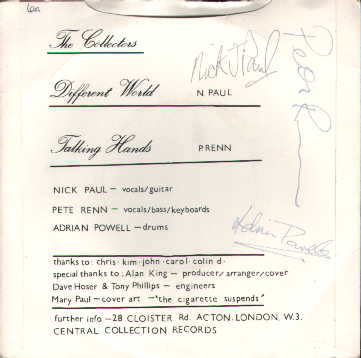 The Collectors
Nick J Paul
Different World N. PAUL
Peter R
Talking Hands P.RENN
NICK PAUL – vocals/guitar
PETE RENN – vocals/bass/keyboards
ADRIAN POWELL – drums
Adrian Powell
thanks to: chris · kim · john · carol · colin d·
special thanks to: Alan King – producer/arranger/cover
Dave Hoser & Tony Phillips – engineers
Mary Paul – cover art – "the cigarette suspends"
further info – 28 CLOISTER Rd. ACTON. LONDON W.3.
CENTRAL COLLECTION RECORDS